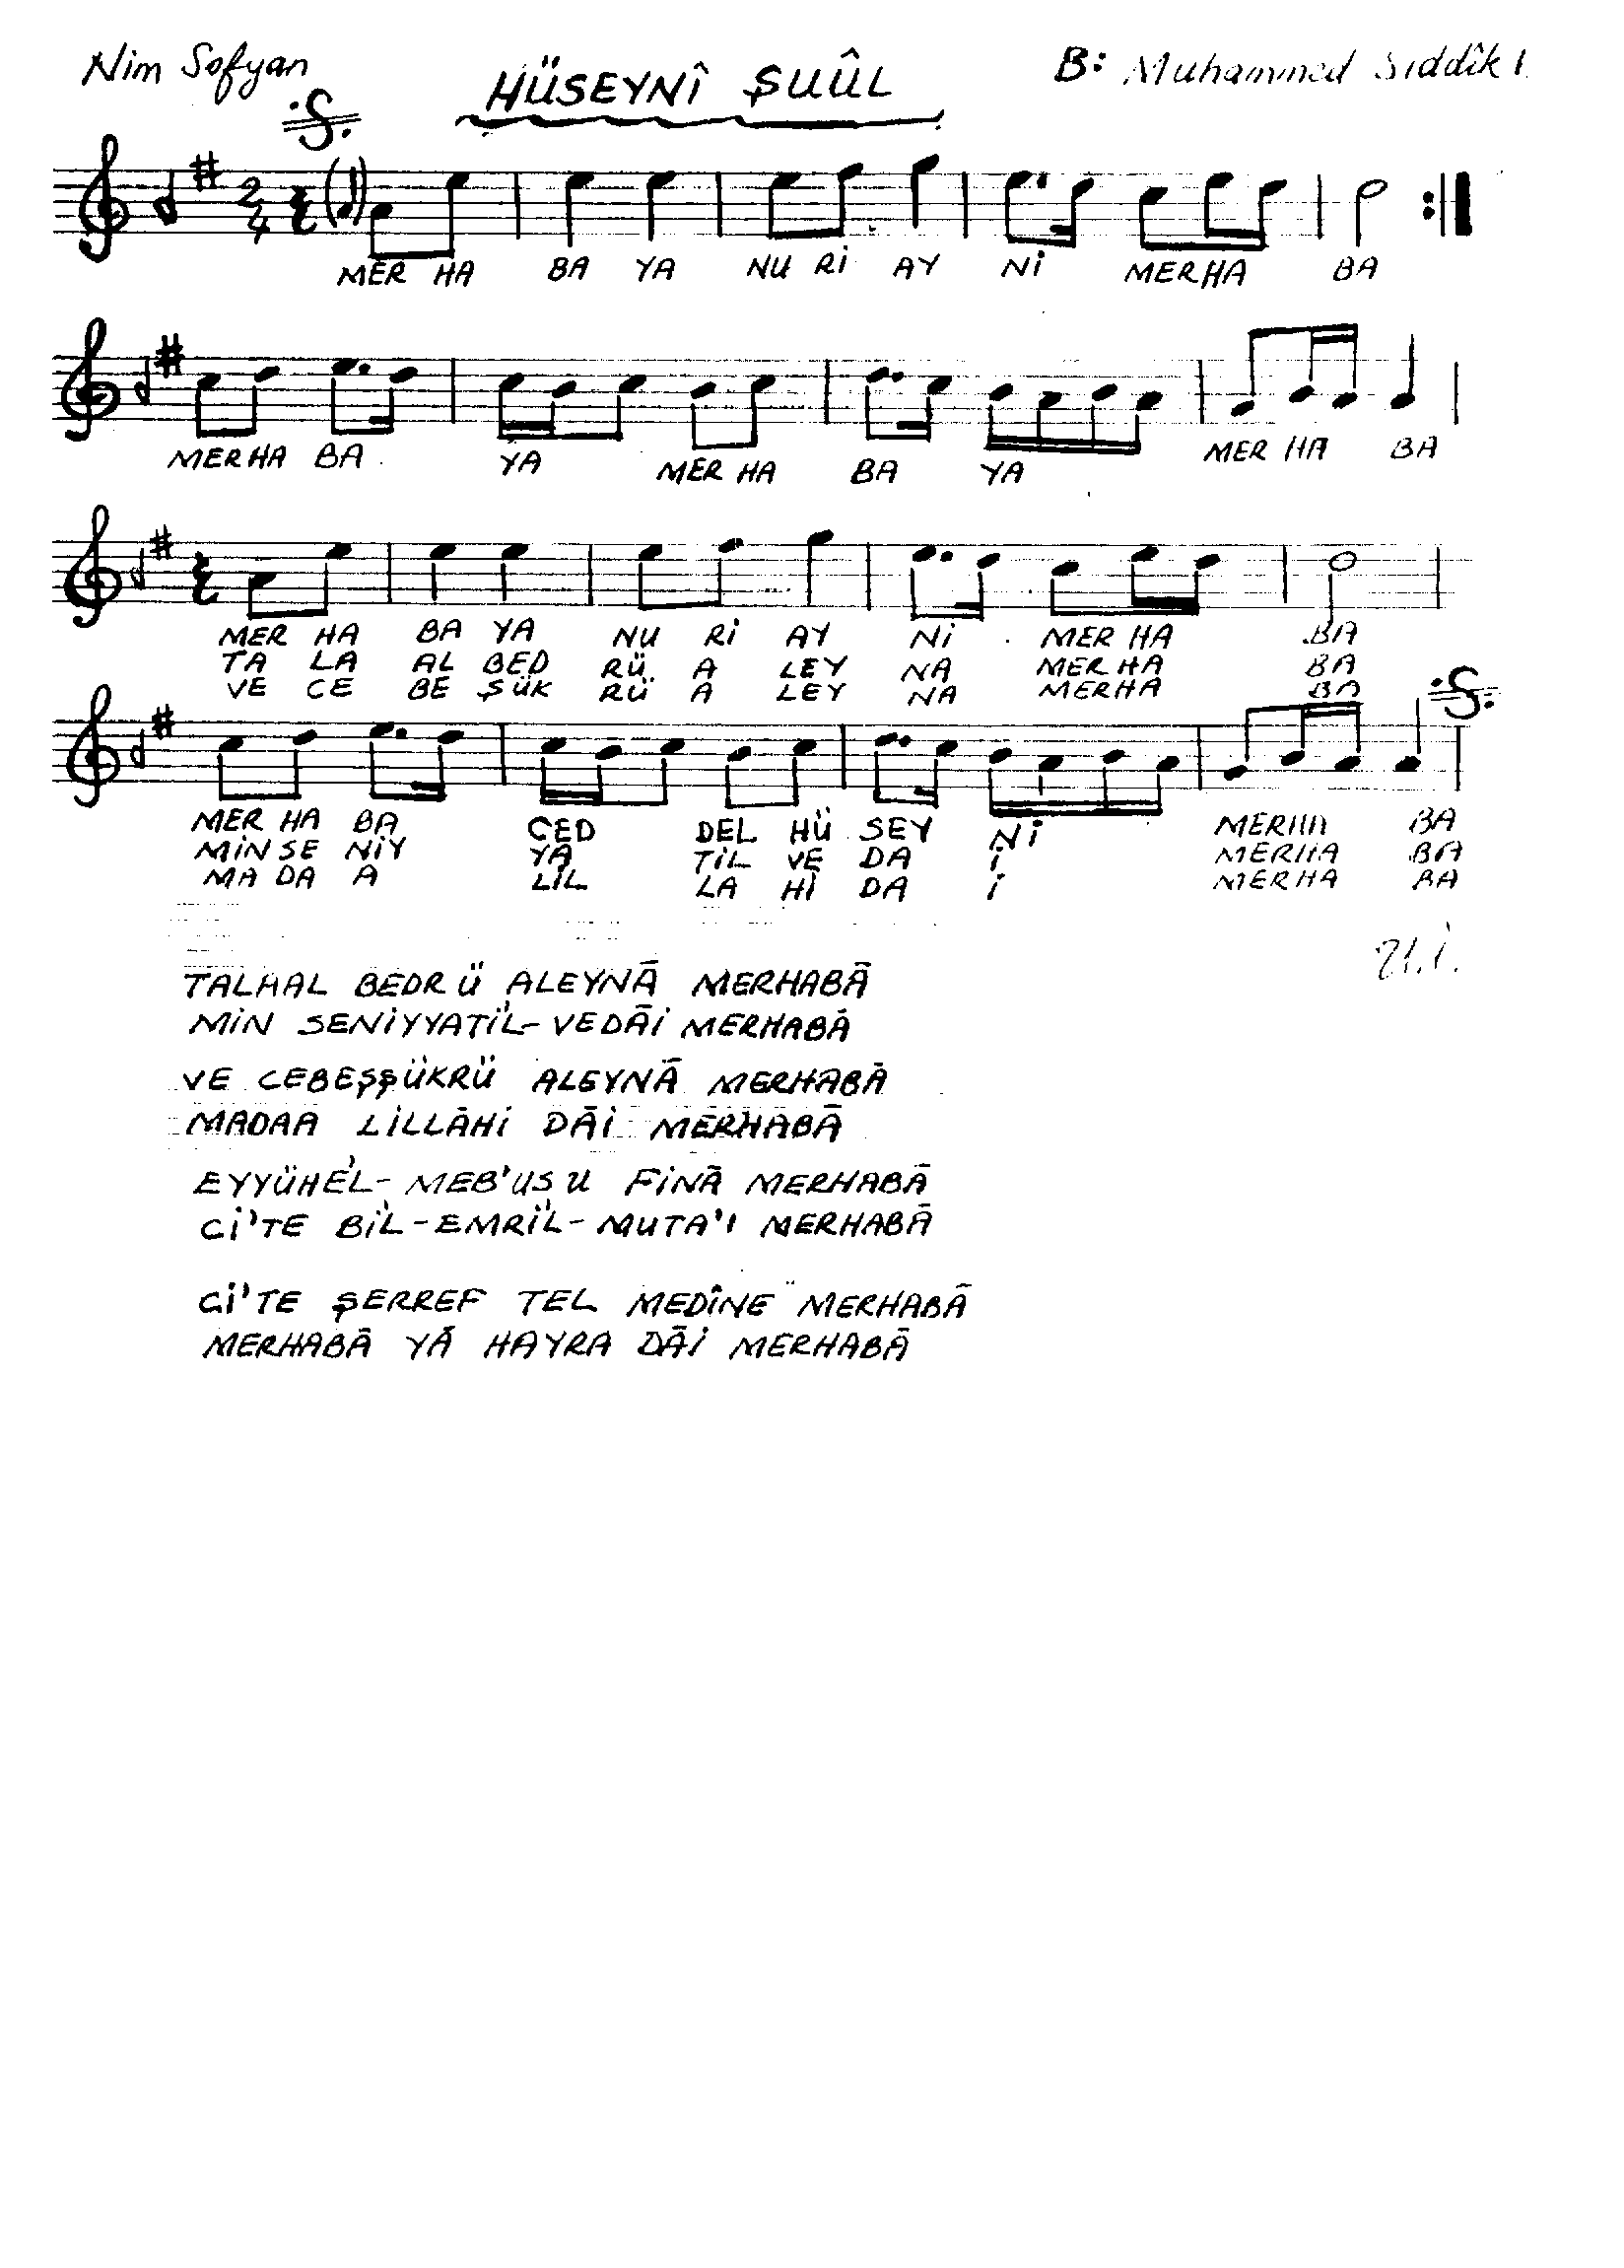 Nim Sofyan
HÜSEYNÎ ŞUÛL
B: Muhammed Sıddîk
2/4
MER HA BA YA NU Rİ AY Nİ MERHA BA
MERHA BA YA MER HA BA YA MER HA BA
MER HA BA YA NU Rİ AY Nİ MER HA BA
TA LA AL BED RÜ A LEY NA MER HA BA
VE CE BE ŞÜK RÜ A LEY NA MERHA BA
MER HA BA CED DEL HÜ SEY Nİ MERHA BA
MİN SE NİY YA TİL VE DA İ MERHA BA
MA DA A LİL LA Hİ DA İ MERHA BA
TALAAL BEDRÜ ALEYNĀ MERHABĀ
MİN SENİYYATİ'L-VEDĀİ MERHABĀ
VE CEBEŞŞÜKRÜ ALEYNĀ MERHABĀ
MADAA LİLLĀHİ DĀİ MERHABĀ
EYYÜHE'L-MEB'USU FİNĀ MERHABĀ
Cİ'TE Bİ'L-EMRİ'L-MUTA'I MERHABĀ
Cİ'TE ŞERREF TEL MEDÎNE MERHABĀ
MERHABĀ YĀ HAYRA DĀİ MERHABĀ